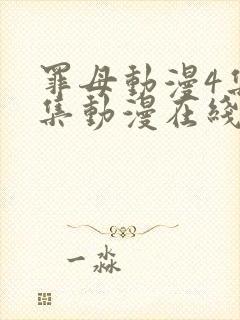 罪母動漫4集
集動漫在綫
一淼